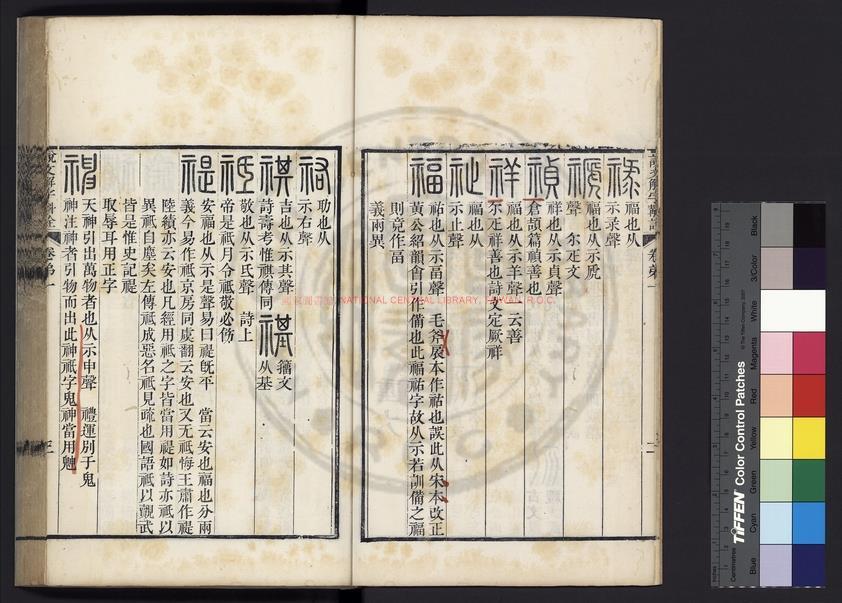 福也从
示彔聲
福也从示虒
聲 尒疋文
祥也从示貞聲
倉頡篇禎善也
福也从示羊聲 云善
尒疋祥善也詩文定厥祥
福也从
示止聲
祐也从示畐聲 毛斧扆本作祐也誤此从宋本改正
黃公紹韻會引作備也此福祐字故从示若訓備之福
則竞作畐
義兩異
助也从
示右聲
吉也从示其聲
詩壽考惟祺傳同 籒文
从基
敬也从示氏聲 詩上
帝是祇月令祗敬必飭
安福也从示是聲易曰禔旣平 當云安也福也分兩
義今易作祇京房同虞翻云安也又无祇悔王肅作禔
陸績亦云安也凡經用祇之字皆當用禔如詩亦祇以
異祇自塵矣左傳祇成惡名祇見疏也國語祇以觀武
皆是惟史記禔
取辱耳用正字
天神引出萬物者也从示申聲 禮運列于鬼
神注神者引物而出此神祇字鬼神當用魋
卷弟一
三
卷弟一
國家圖書館 NATIONAL CENTRAL LIBRARY, TAIWAN, R.O.C.
TIFFEN Color Control Patches
© The Tiffen Company, 2007
Centimetres
Blue
Cyan
Green
Yellow
Red
Magenta
White
3/Color
Black